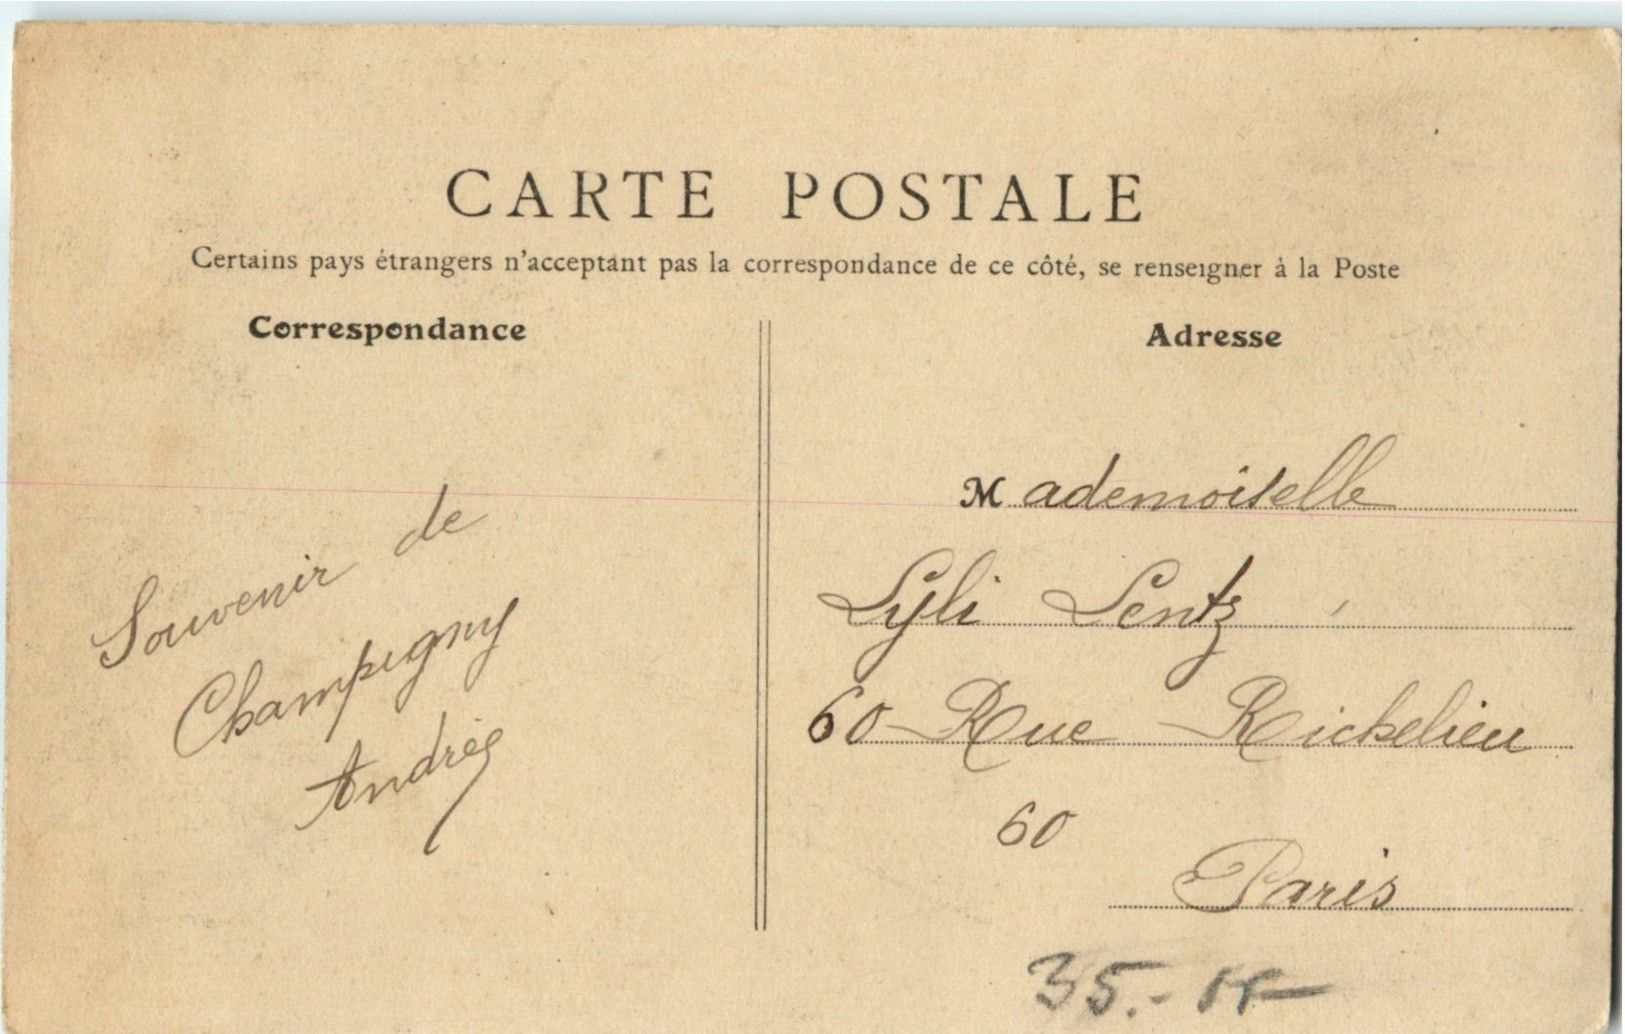 CARTE POSTALE
Certains pays étrangers n'acceptant pas la correspondance de ce côté, se renseigner à la Poste
Correspondance
Adresse
Souvenir de
Champigny
Mademoiselle
Lyli Lentz
60 Rue Richelieu
60
Paris
35.-